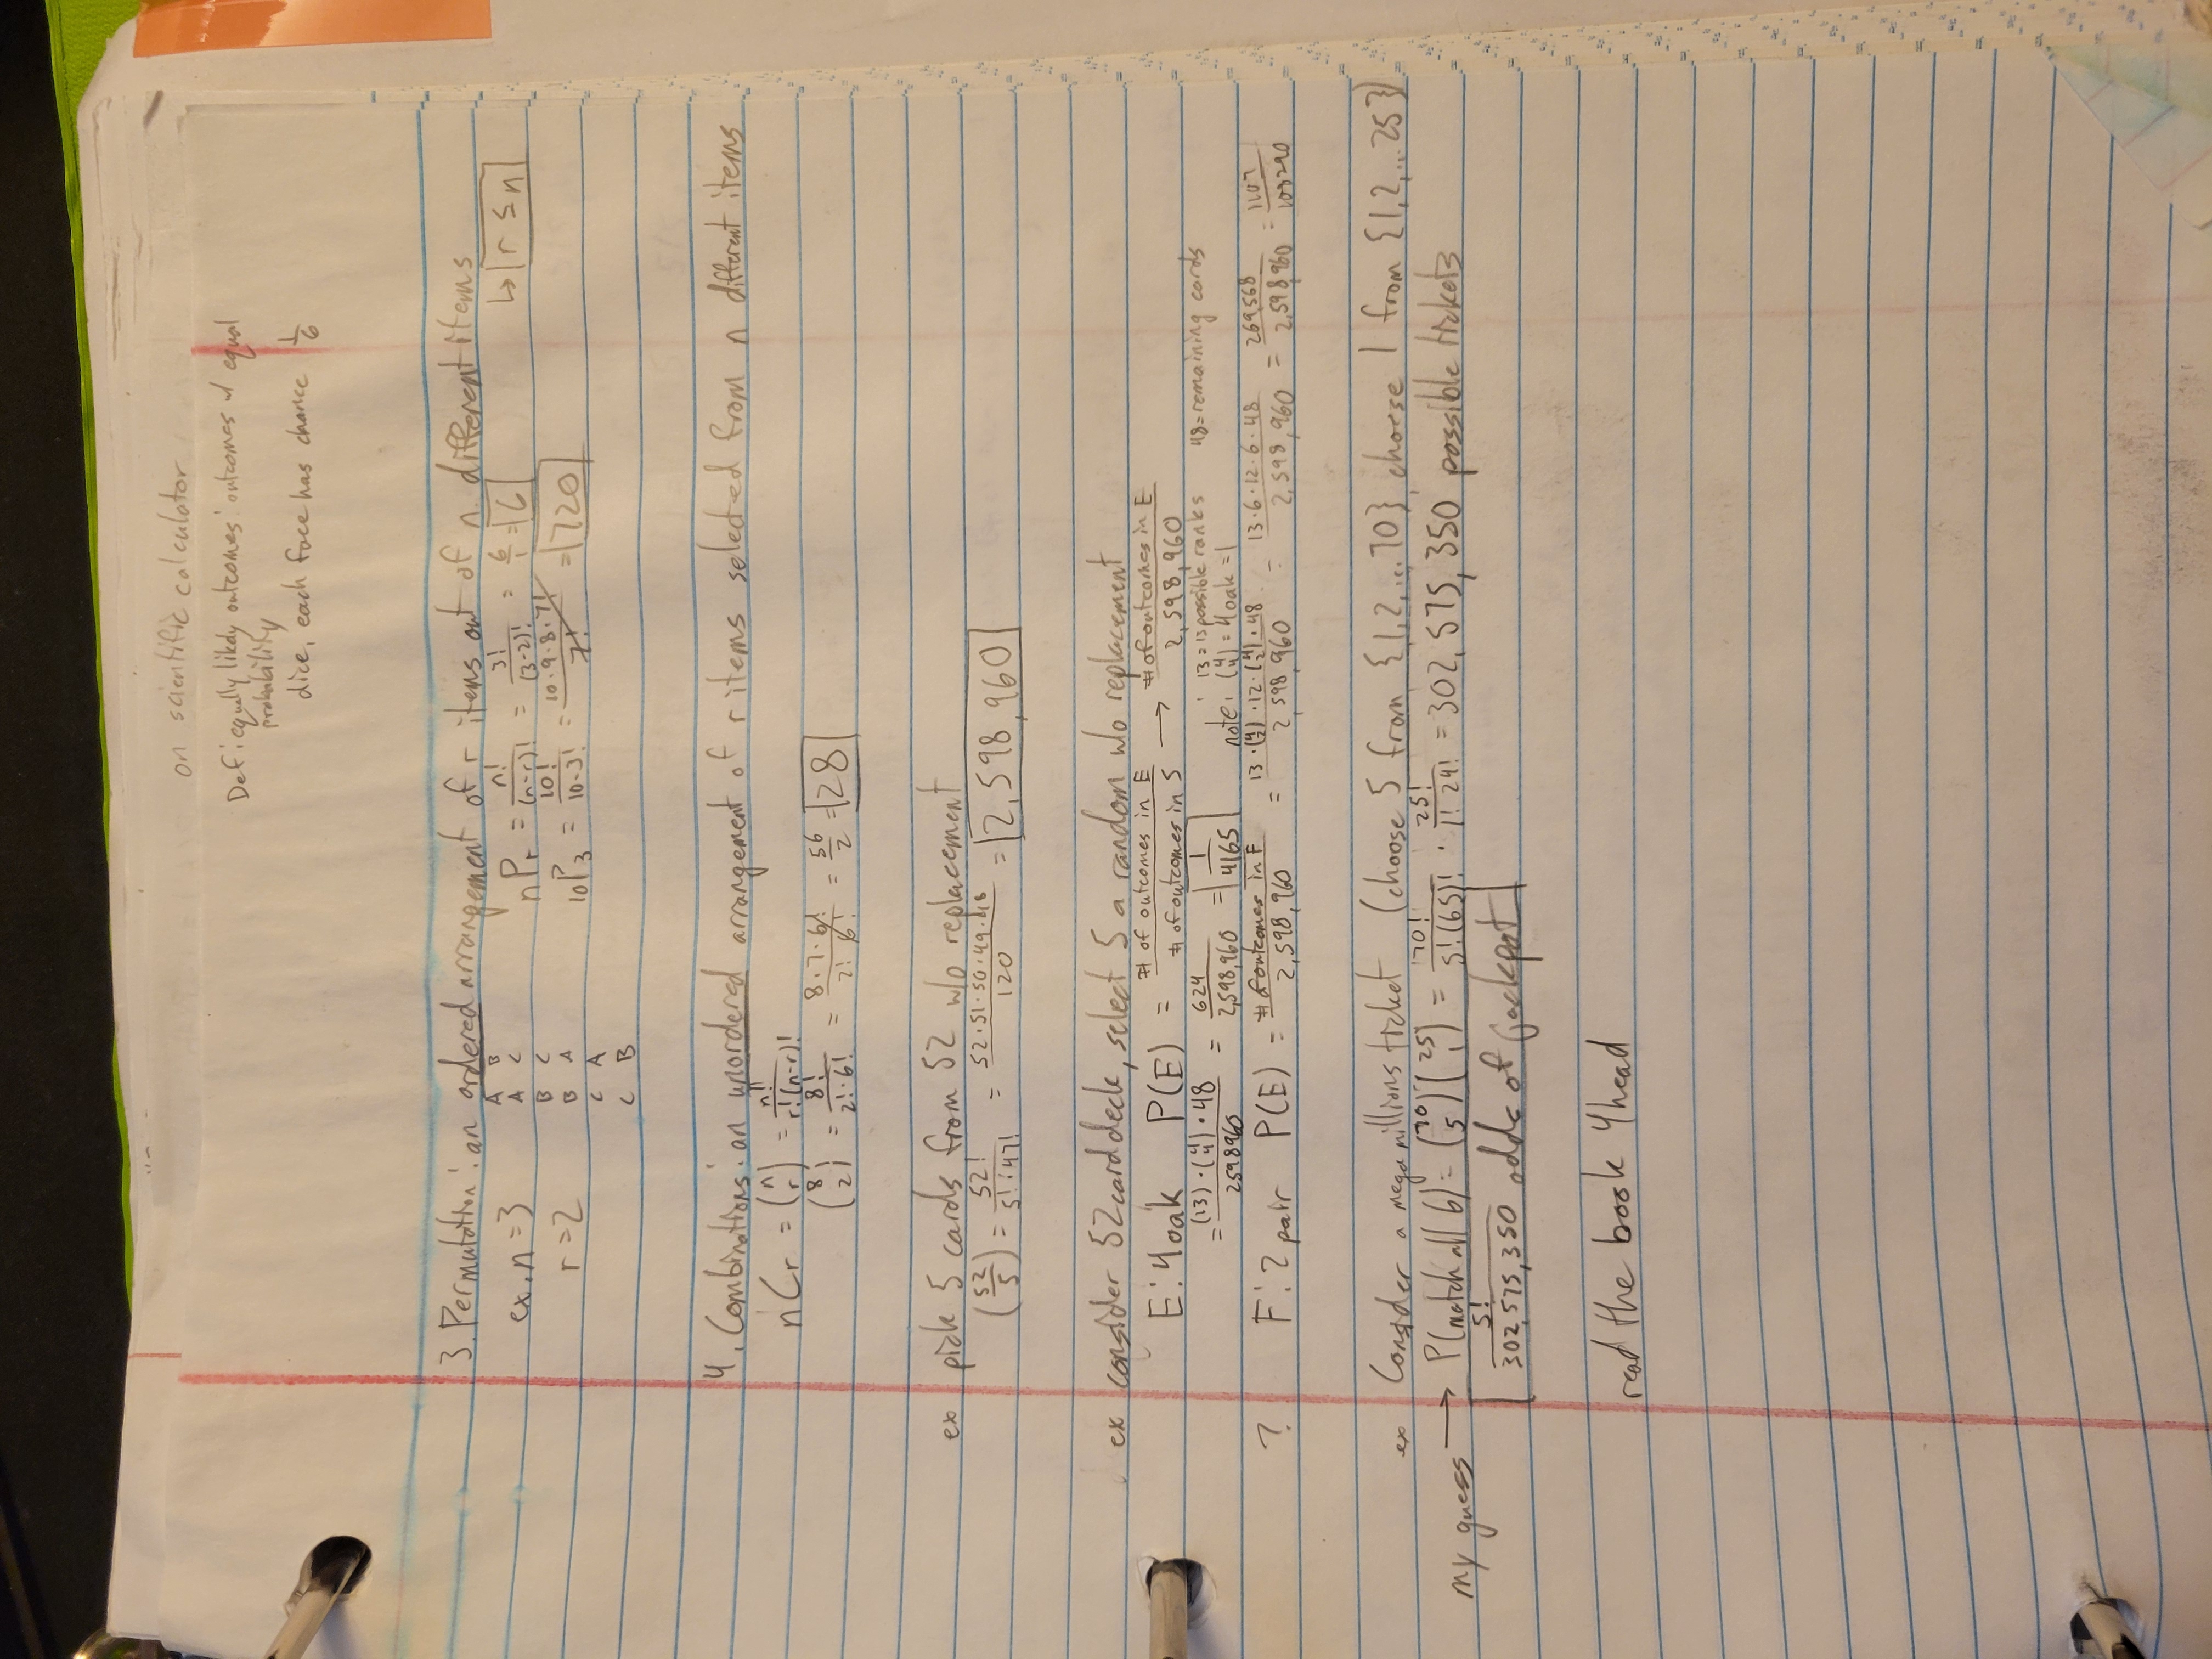 on scientific calculator
Def: equally likely outcomes: outcomes w/ equal
probability
dice, each face has chance 1/6
3. Permutation: an ordered arrangement of r items out of n different items
↳ r ≤ n
ex. n = 3
r = 2
A B
A C
B C
B A
C A
C B
nPr = n!/(n-r)! = 3!/(3-2)! = 6/1 = 6
10P3 = 10!/10-3! = 10·9·8·7!/7! = 720
4. Combinations: an unordered arrangement of r items selected from n different items
nCr = (n r) = n!/r!(n-r)!
(8 2) = 8!/2!·6! = 8·7·6!/2! 6! = 56/2 = 28
ex pick 5 cards from 52 w/o replacement
(52/5) = 52!/5!·47! = 52·51·50·49·48/120 = 2,598,960
ex consider 52 card deck, select 5 a random w/o replacement
E: 4oak P(E) = # of outcomes in E/# of outcomes in S → # of outcomes in E/2,598,960
= (13)·(4 4)·48/2598960 = 624/2,598,960 = 1/4165
13 = 13 possible ranks 48 = remaining cards
note: (4 4) = 4oak = 1
? F: 2 pair P(E) = # of outcomes in F/2,598,960 = 13·(4 2)·12·(4 2)·48/2,598,960 = 13·6·12·6·48/2,598,960 = 269,568/2,598,960
ex Consider a mega millions ticket (choose 5 from {1,2,...70} choose 1 from {1,2,...25})
my guess → P(match all 6) = (70 5)(25 1) = 70!/5!(65)! · 25!/1! 24! = 302,575,350 possible tickets
5!/302,575,350 odds of jackpot
read the book 4head